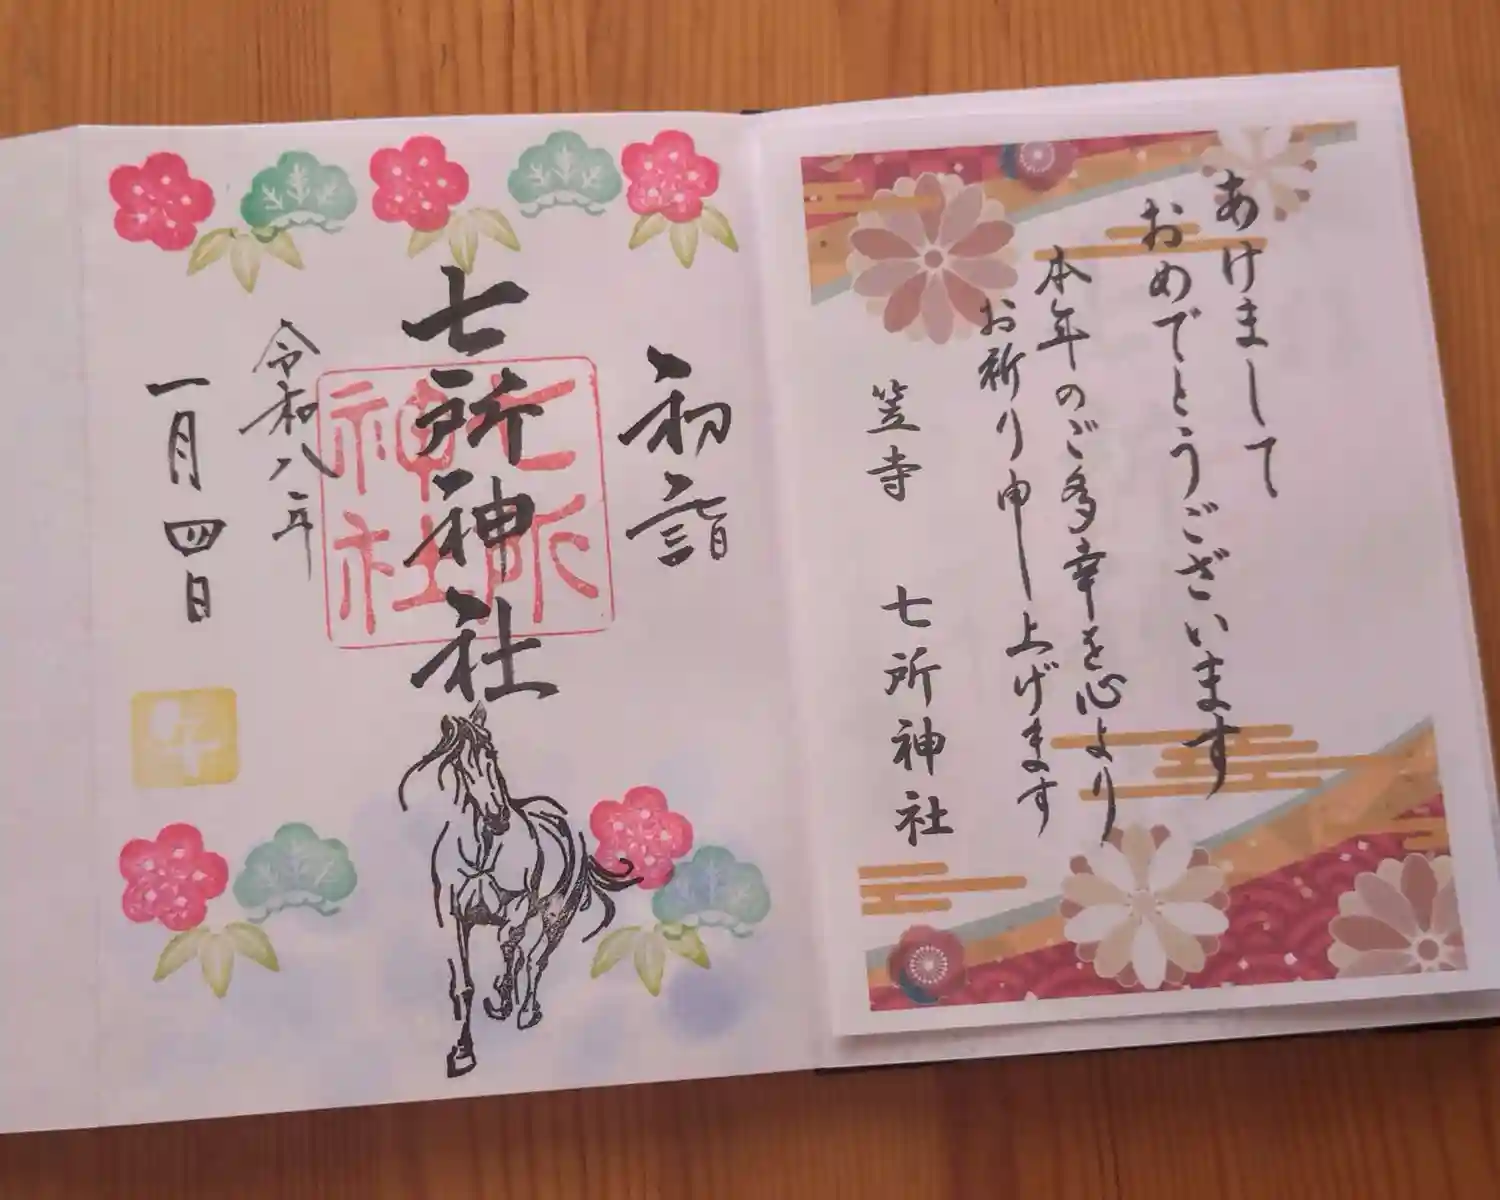 あけまして
おめでとうございます
本年のご多幸を心より
お祈り申し上げます
笠寺 七所神社
初詣
七所神社
七所
神社
令和八年
一月四日
午